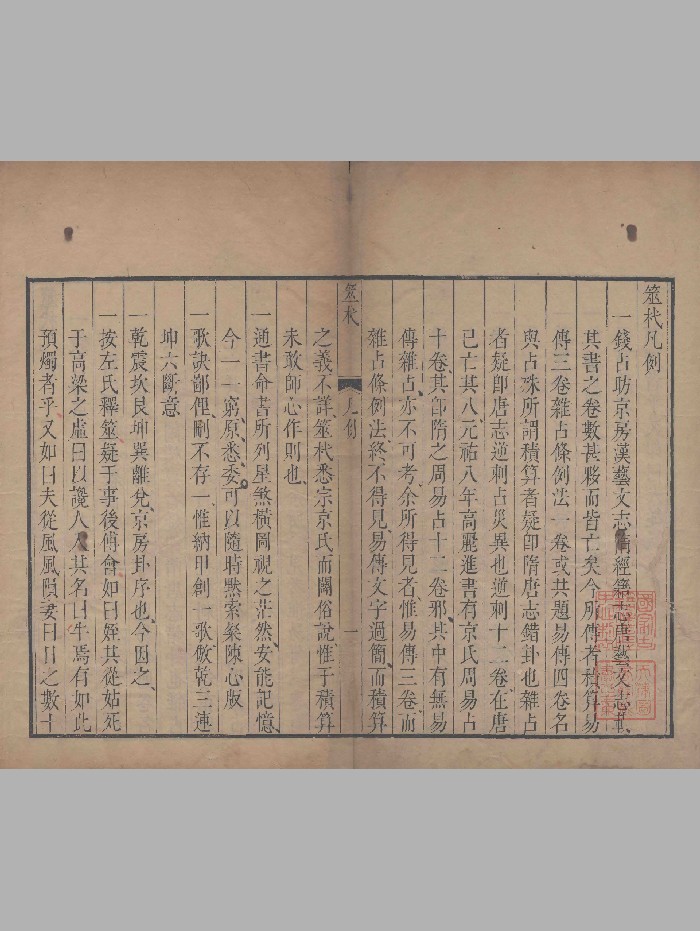 筮杙凡例
一錢占昉京房漢藝文志隋經籍志唐藝文志札
其書之卷數甚夥而皆亡矣今所傳者積算易
傳三卷雜占條例法一卷或共題易傳四卷名
與占殊所謂積算者疑即隋唐志錯卦也雜占
者疑即唐志逆刺占災異也逆刺十二卷在唐
已亡其八元祐八年高麗進書有京氏周易占
十卷其即隋之周易占十二卷邪其中有無易
傳雜占亦不可考余所得見者惟易傳三卷而
雜占條例法終不得見易傳文字過簡而積算
筮杙 凡例 一
之義不詳筮杙悉宗京氏而闢俗說惟于積算
未敢師心作則也
一通書命書所列星煞橫圖視之茫然安能記憶
今一一窮原悉委可以隨時默索粲陳心版
一歌訣鄙俚刪不存一惟納甲創一歌倣乾三連
坤六斷意
一乾震坎艮坤巽離兌京房卦序也今因之
一按左氏釋筮疑于事後傅會如曰姪其從姑死
于高梁之虛曰以讒人入其名曰牛焉有如此
預燭者乎又如曰夫從風風隕妻曰日之數十